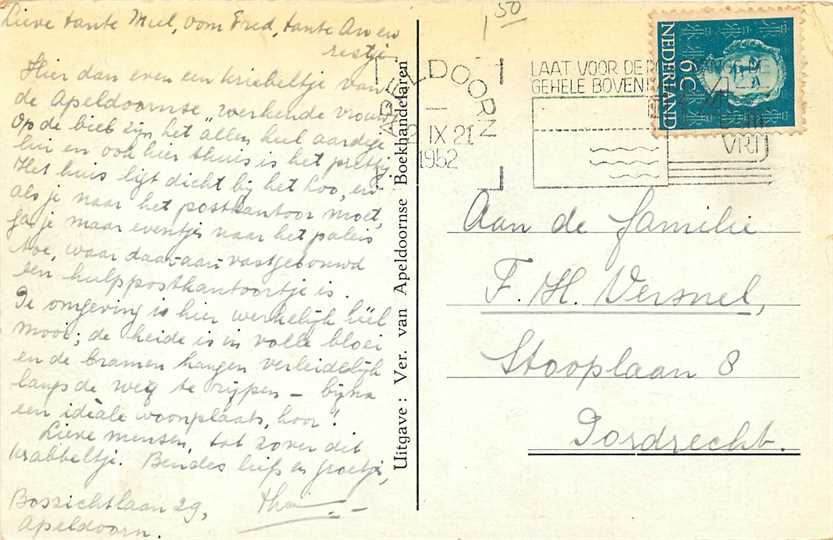 Lieve tante Miel, oom Fred, tante An en
restje
Hier dan even een kriebeltje van
de Apeldoornse „werkende vrouw”
Op de bieb zijn het allen heel aardige
lui en ook hier thuis is het prettig.
Het huis ligt dicht bij het Loo, en
als je naar het postkantoor moet,
ga je maar eventjes naar het paleis
toe, waar daaraan vastgebouwd
een hulppostkantoortje is.
De omgeving is hier werkelijk héél
mooi; de heide is in volle bloei
en de bramen hangen verleidelijk
langs de weg te rijpen – bijna
een ideale woonplaats, hoor!
Lieve mensen, tot zover dit
krabbeltje. Bendes liefs en groetjes,
Boszichtlaan 29,
Apeldoorn.
Uitgave: Ver. van Apeldoornse Boekhandelaren
1 50
APELDOORN
IX 21
1952
LAAT VOOR DE
GEHELE BOVEN
VRIJ
NEDERLAND
6 C
Aan de familie
F. H. Versnel,
Stooplaan 8
Dordrecht.